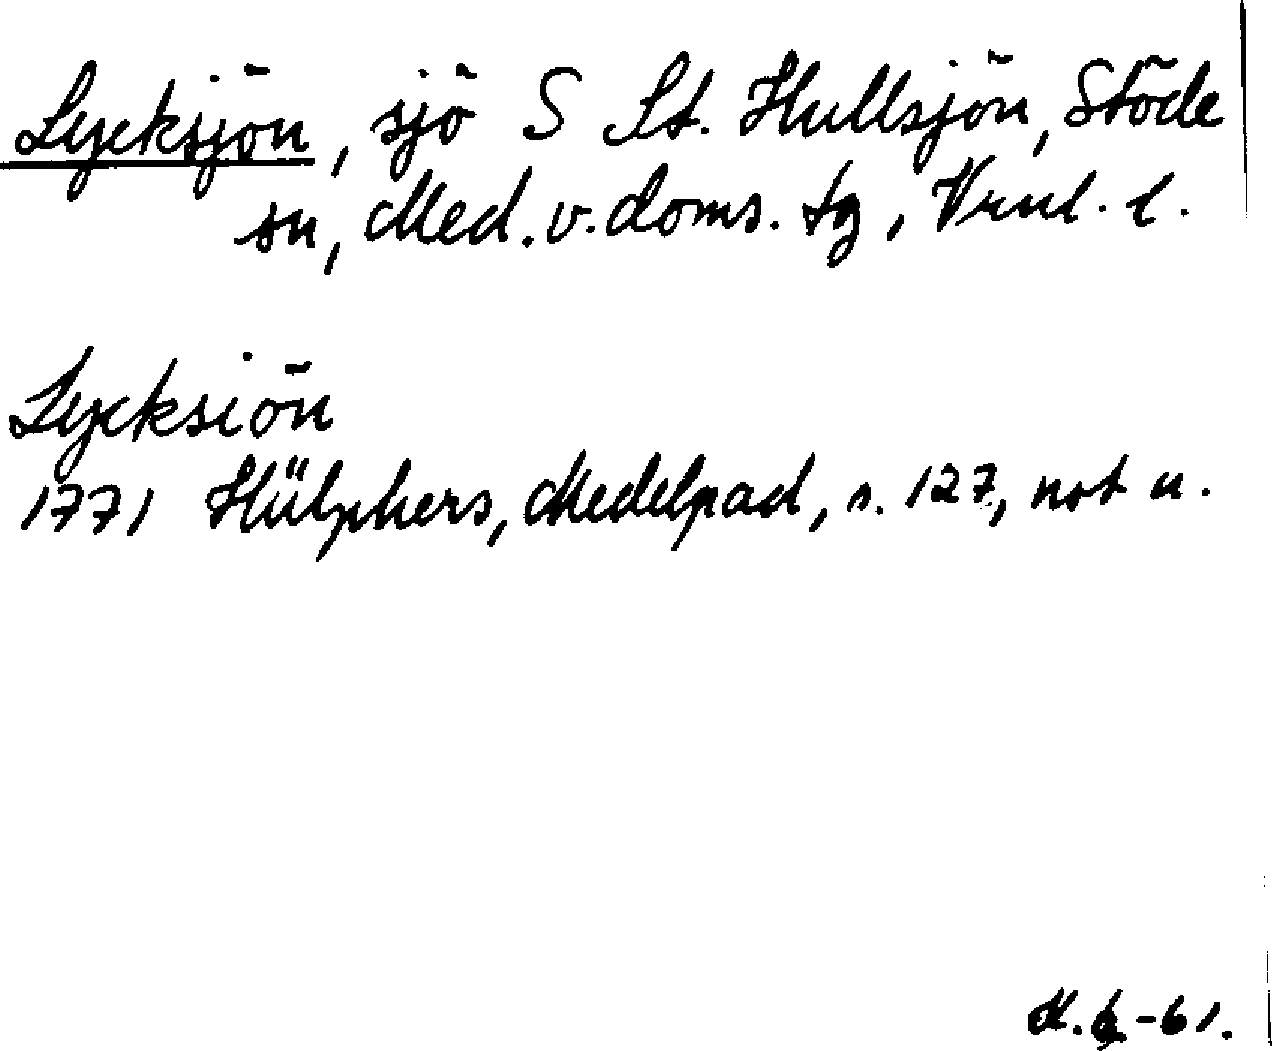 Lycksjön, sjö S St. Hullsjön, Stöde
sn, Med. v. doms. tg, Vrnl. l.
Lycksiön
1771 Hülphers, Medelpad, s. 127, not u.
-61.